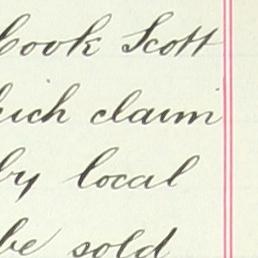 Cook Scott
which claim
by local
be sold